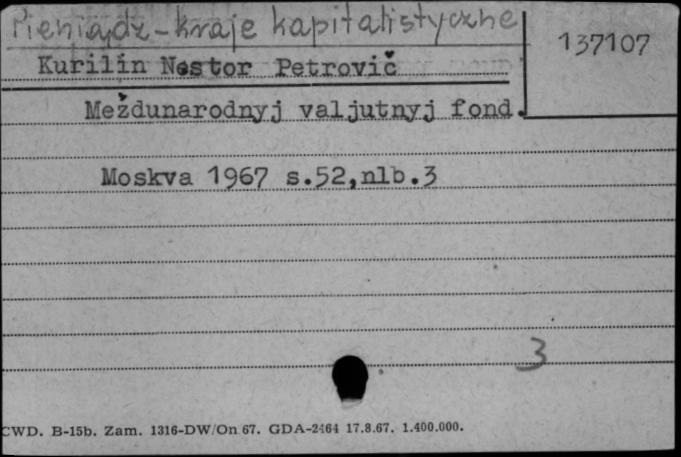 Pieniądz - kraje kapitalistyczne
137107
Kurilin Nestor Petrovič
Meždunarodnyj valjutnyj fond.
Moskva 1967 s.52,nlb.3
3
CWD. B-15b. Zam. 1316-DW/On 67. GDA-2464 17.8.67. 1.400.000.